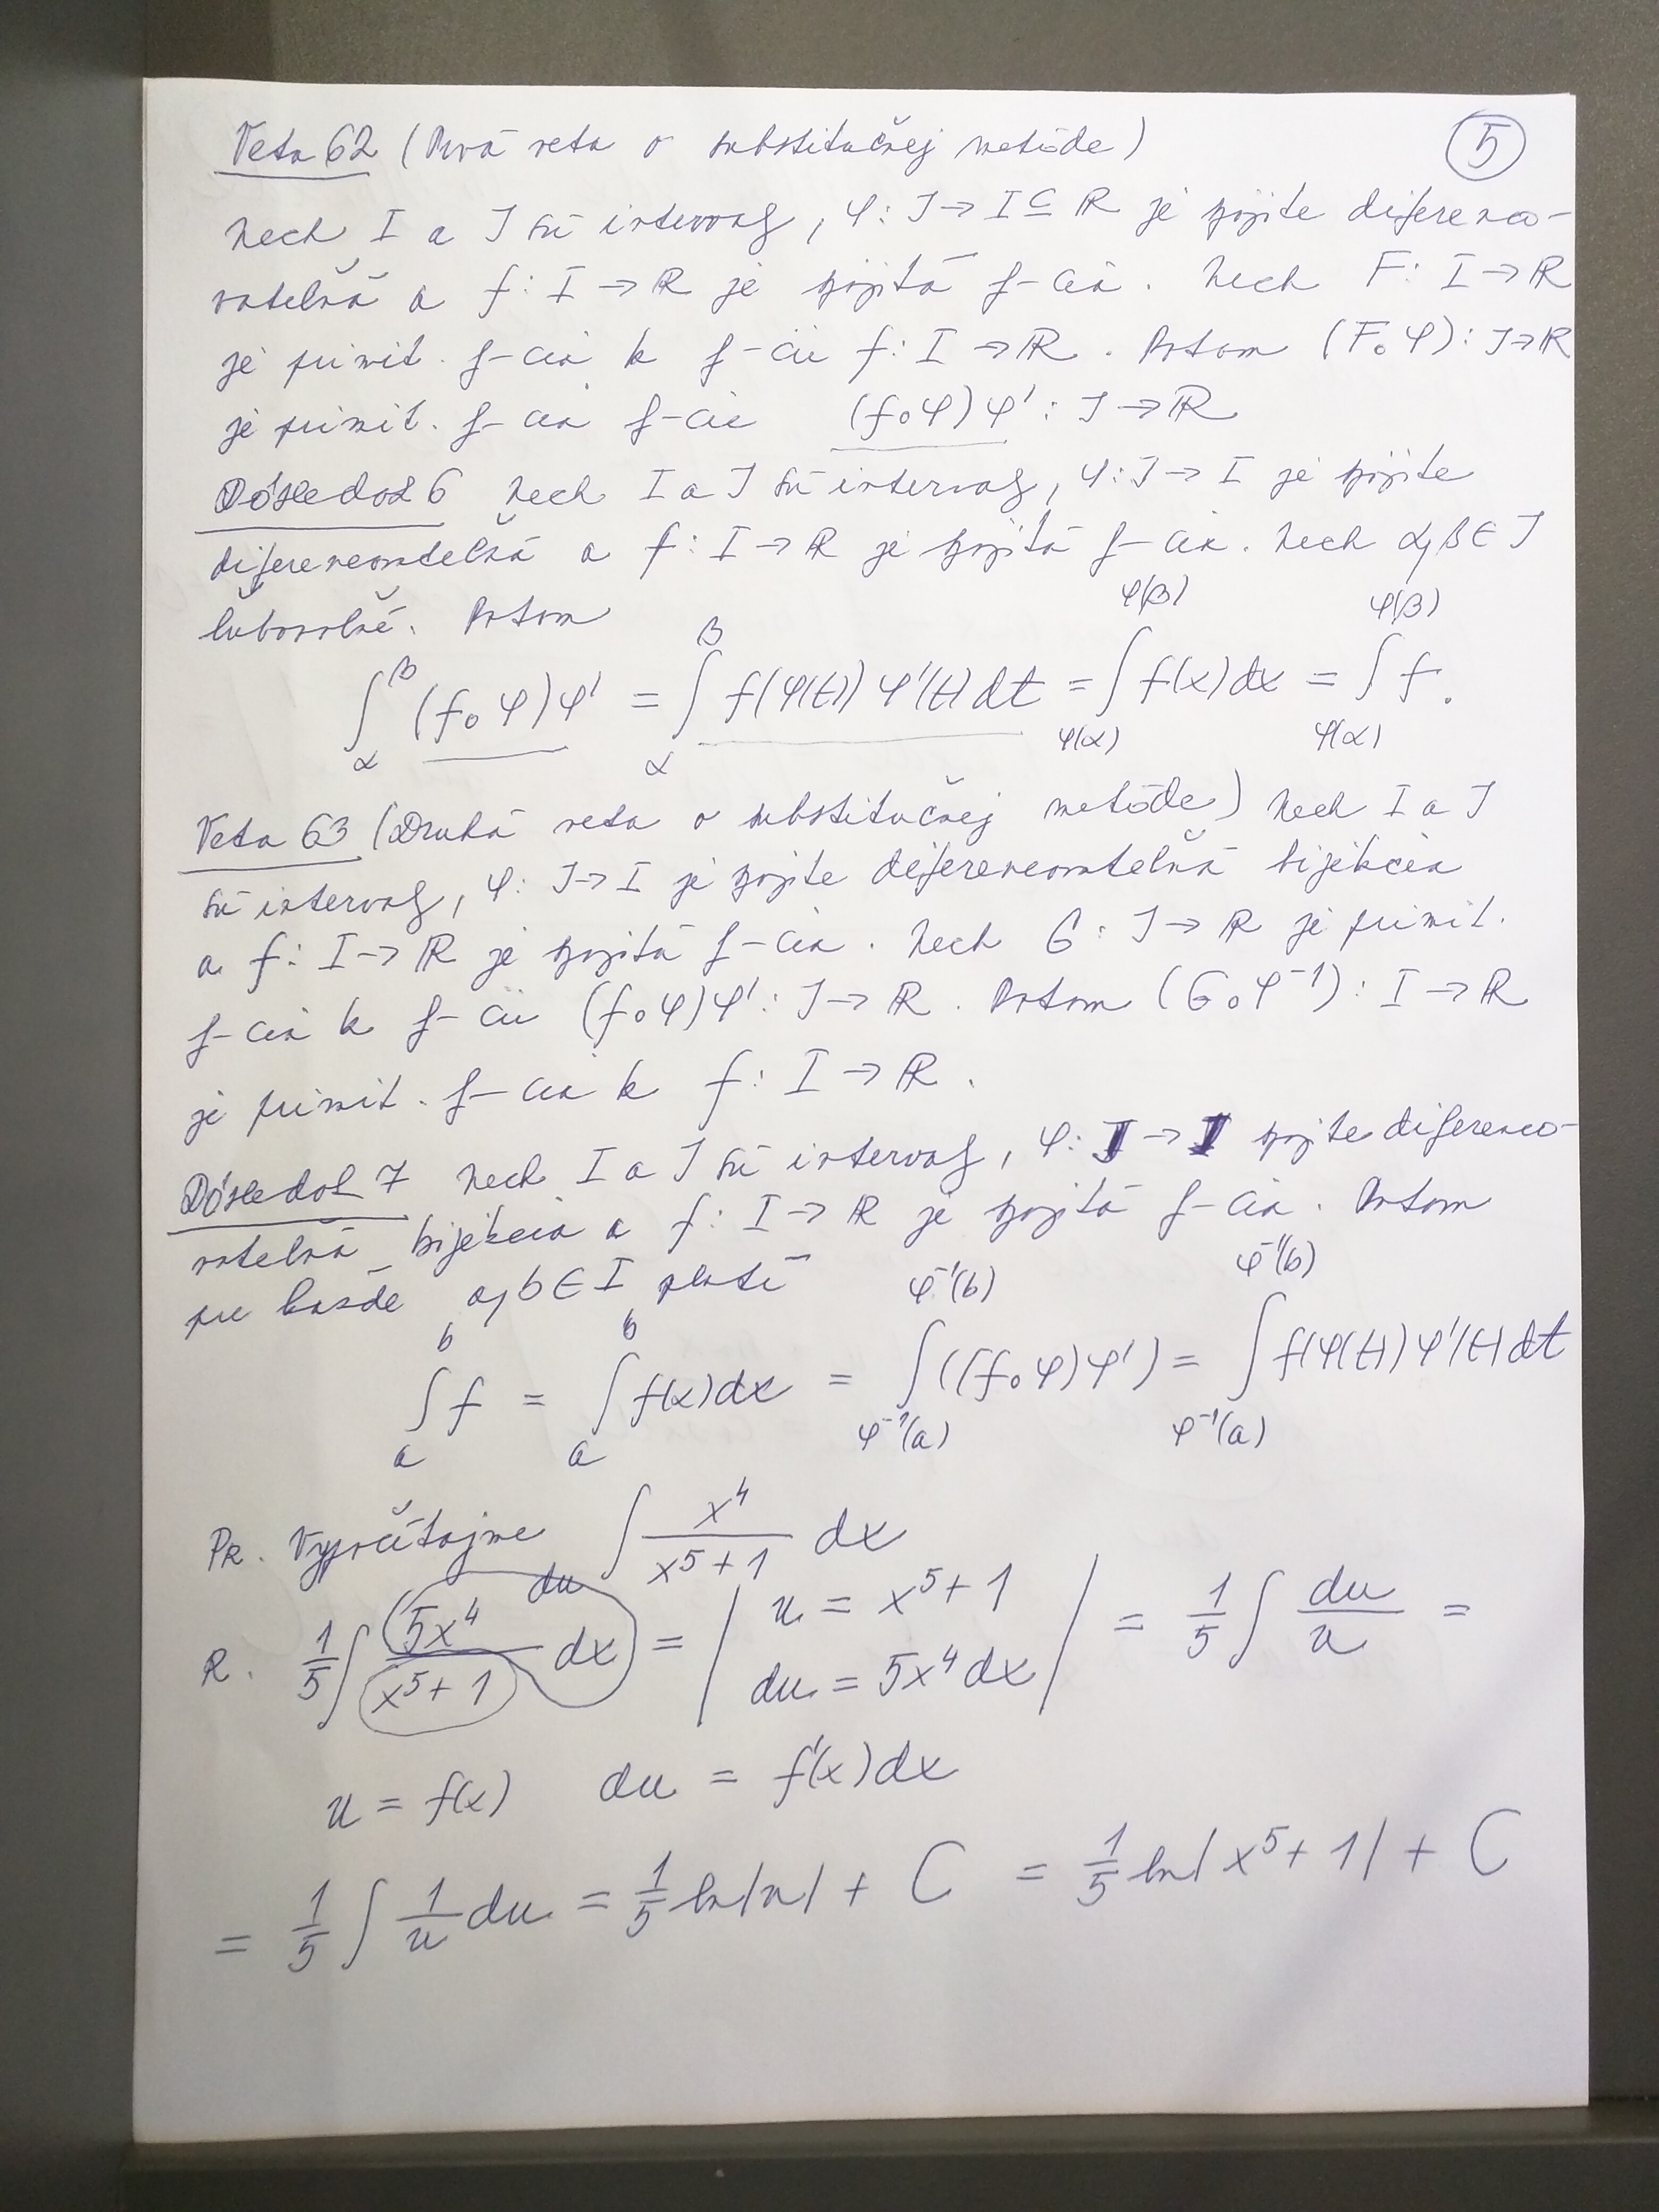 Veta 62 (Prvá veta o substitučnej metóde)
5
Nech I a J sú intervaly, φ: J → I ⊆ ℝ je spojite diferenco-
vateľná a f: I → ℝ je spojitá f-cia. Nech F: I → ℝ
je primit. f-cia k f-cii f: I → ℝ. Potom (F∘φ): J → ℝ
je primit. f-cia f-cie (f∘φ)φ': J → ℝ
Dôsledok 6 Nech I a J sú intervaly, φ: J → I je spojite
diferencovateľná a f: I → ℝ je spojitá f-cia. Nech α, β ∈ J
ľubovoľné. Potom
∫_α^β (f∘φ)φ' = ∫_α^β f(φ(t)) φ'(t) dt = ∫_{φ(α)}^{φ(β)} f(x) dx = ∫_{φ(α)}^{φ(β)} f.
Veta 63 (Druhá veta o substitučnej metóde) Nech I a J
sú intervaly, φ: J → I je spojite diferencovateľná bijekcia
a f: I → ℝ je spojitá f-cia. Nech G: J → ℝ je primit.
f-cia k f-cii (f∘φ)φ': J → ℝ. Potom (G∘φ⁻¹): I → ℝ
je primit. f-cia k f: I → ℝ.
Dôsledok 7 Nech I a J sú intervaly, φ: J → I spojite diferenco-
vateľná bijekcia a f: I → ℝ je spojitá f-cia. Potom
pre každé a, b ∈ I platí
∫_a^b f = ∫_a^b f(x) dx = ∫_{φ⁻¹(a)}^{φ⁻¹(b)} ((f∘φ)φ') = ∫_{φ⁻¹(a)}^{φ⁻¹(b)} f(φ(t)) φ'(t) dt
Pr. Vypočítajme ∫ x⁴/(x⁵+1) dx
du
R. 1/5 ∫ 5x⁴/(x⁵+1) dx = | u = x⁵+1 du = 5x⁴dx | = 1/5 ∫ du/u =
u = f(x) du = f'(x)dx
= 1/5 ∫ 1/u du = 1/5 ln|u| + C = 1/5 ln|x⁵+1| + C